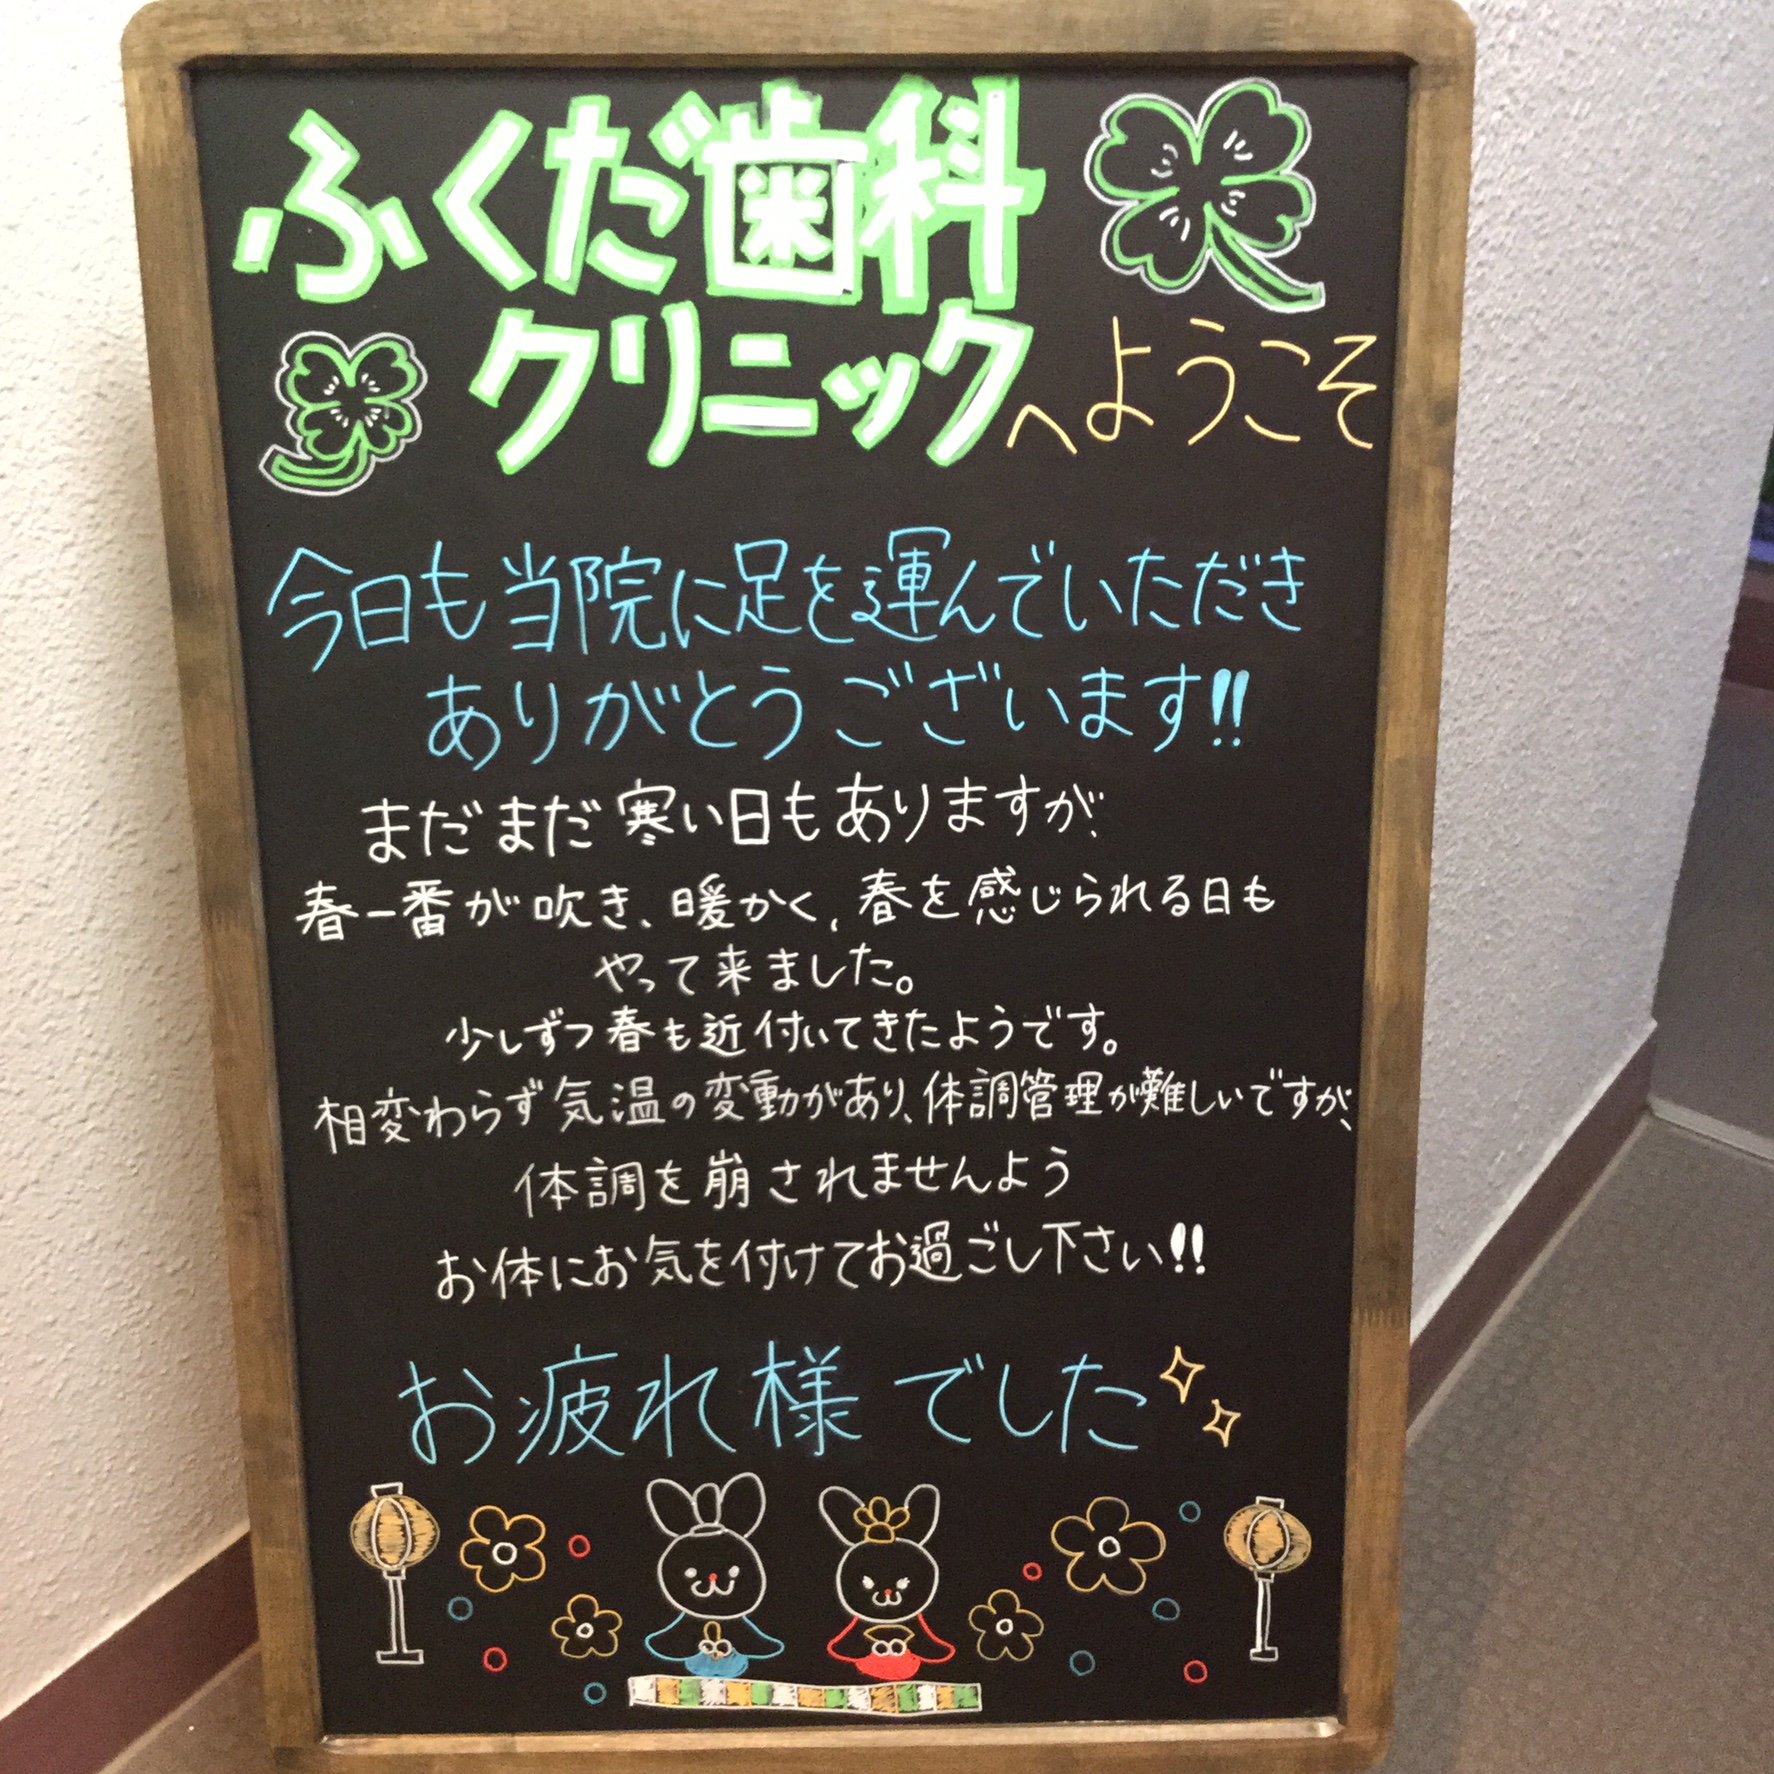 ふくだ歯科
クリニックへようこそ
今日も当院に足を運んでいただき
ありがとうございます!!
まだまだ寒い日もありますが
春一番が吹き、暖かく、春を感じられる日も
やって来ました。
少しずつ春も近付いてきたようです。
相変わらず気温の変動があり、体調管理が難しいですが、
体調を崩されませんよう
お体にお気を付けてお過ごし下さい!!
お疲れ様でした